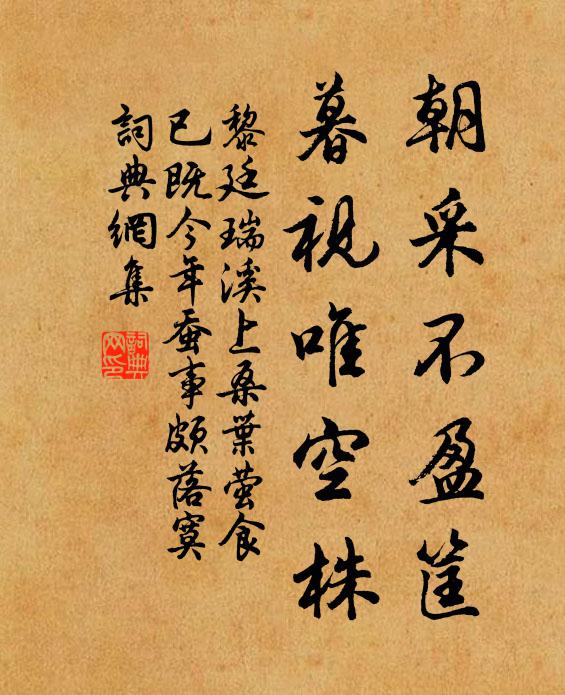 朝采不盈筐
暮視唯空株
黎廷瑞溪上桑葉螢食
已既今年蚕事頗落寞
詞典網集
詞典网印